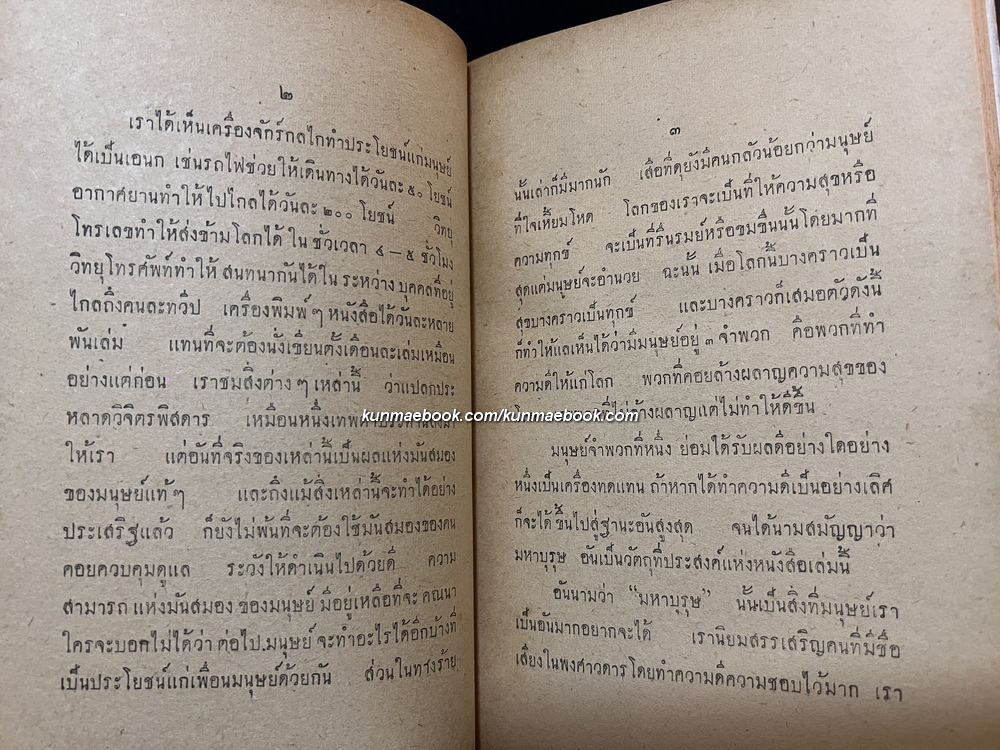 ๒
เราได้เห็นเครื่องจักร์กลไกทำประโยชน์แก่มนุษย์
ได้เป็นเอนก เช่นรถไฟช่วยให้เดินทางได้วันละ ๕๐ โยชน์
อากาศยานทำให้ไปไกลได้วันละ ๒๐๐ โยชน์ วิทยุ
โทรเลขทำให้ส่งข้ามโลกได้ ใน ชั่วเวลา ๔ — ๕ ชั่วโมง
วิทยุโทรศัพท์ทำให้ สนทนากันได้ใน ระหว่าง บุคคลที่อยู่
ไกลถึงคนละทวีป เครื่องพิมพ์ๆ หนังสือได้วันละหลาย
พันเล่ม แทนที่จะต้องนั่งเขียนตั้งเดือนละเล่มเหมือน
อย่างแต่ก่อน เราชมสิ่งต่างๆ เหล่านี้ ว่าแปลกประ
หลาดวิจิตรพิสดาร เหมือนหนึ่งเทพ
ให้เรา แต่อันที่จริงของเหล่านี้เป็นผลแห่งมันสมอง
ของมนุษย์แท้ๆ และถึงแม้สิ่งเหล่านี้จะทำได้อย่าง
ประเสริฐแล้ว ก็ยังไม่พ้นที่จะต้องใช้มันสมองของคน
คอยควบคุมดูแล ระวังให้ดำเนินไปด้วยดี ความ
สามารถ แห่งมันสมอง ของมนุษย์ มีอยู่เหลือที่จะ คณนา
ใครจะบอกไม่ได้ว่า ต่อไป มนุษย์ จะทำอะไรได้อีกบ้างที่
เป็นประโยชน์แก่เพื่อนมนุษย์ด้วยกัน ส่วนในทางร้าย
๓
นั้นเล่าก็มีมากนัก เสือที่ดุยังมีคนกลัวน้อยกว่ามนุษย์
ที่ใจเหี้ยมโหด โลกของเราจะเป็นที่ให้ความสุขหรือ
ความทุกข์ จะเป็นที่รื่นรมย์หรือขมขื่นนั้นโดยมากที่
สุดแต่มนุษย์จะอำนวย ฉะนั้น เมื่อโลกนี้บางคราวเป็น
สุขบางคราวเป็นทุกข์ และบางคราวก็เสมอตัวดังนี้
ก็ทำให้แลเห็นได้ว่ามีมนุษย์อยู่ ๓ จำพวก คือพวกที่ทำ
ความดีให้แก่โลก พวกที่คอยล้างผลาญความสุขของ
ล้างผลาญแต่ไม่ทำให้ดีขึ้น
มนุษย์จำพวกที่หนึ่ง ย่อมได้รับผลดีอย่างใดอย่าง
หนึ่งเป็นเครื่องทดแทน ถ้าหากได้ทำความดีเป็นอย่างเลิศ
ก็จะได้ ขึ้นไปสู่ฐานะอันสูงสุด จนได้นามสมัญญาว่า
มหาบุรุษ อันเป็นวัตถุที่ประสงค์แห่งหนังสือเล่มนี้
อันนามว่า “มหาบุรุษ” นั้นเป็นสิ่งที่มนุษย์เรา
เป็นอันมากอยากจะได้ เรานิยมสรรเสริญคนที่มีชื่อ
เสียงในพงศาวดารโดยทำความดีความชอบไว้มาก เรา
kunmaebook.com/kunmaebook.com